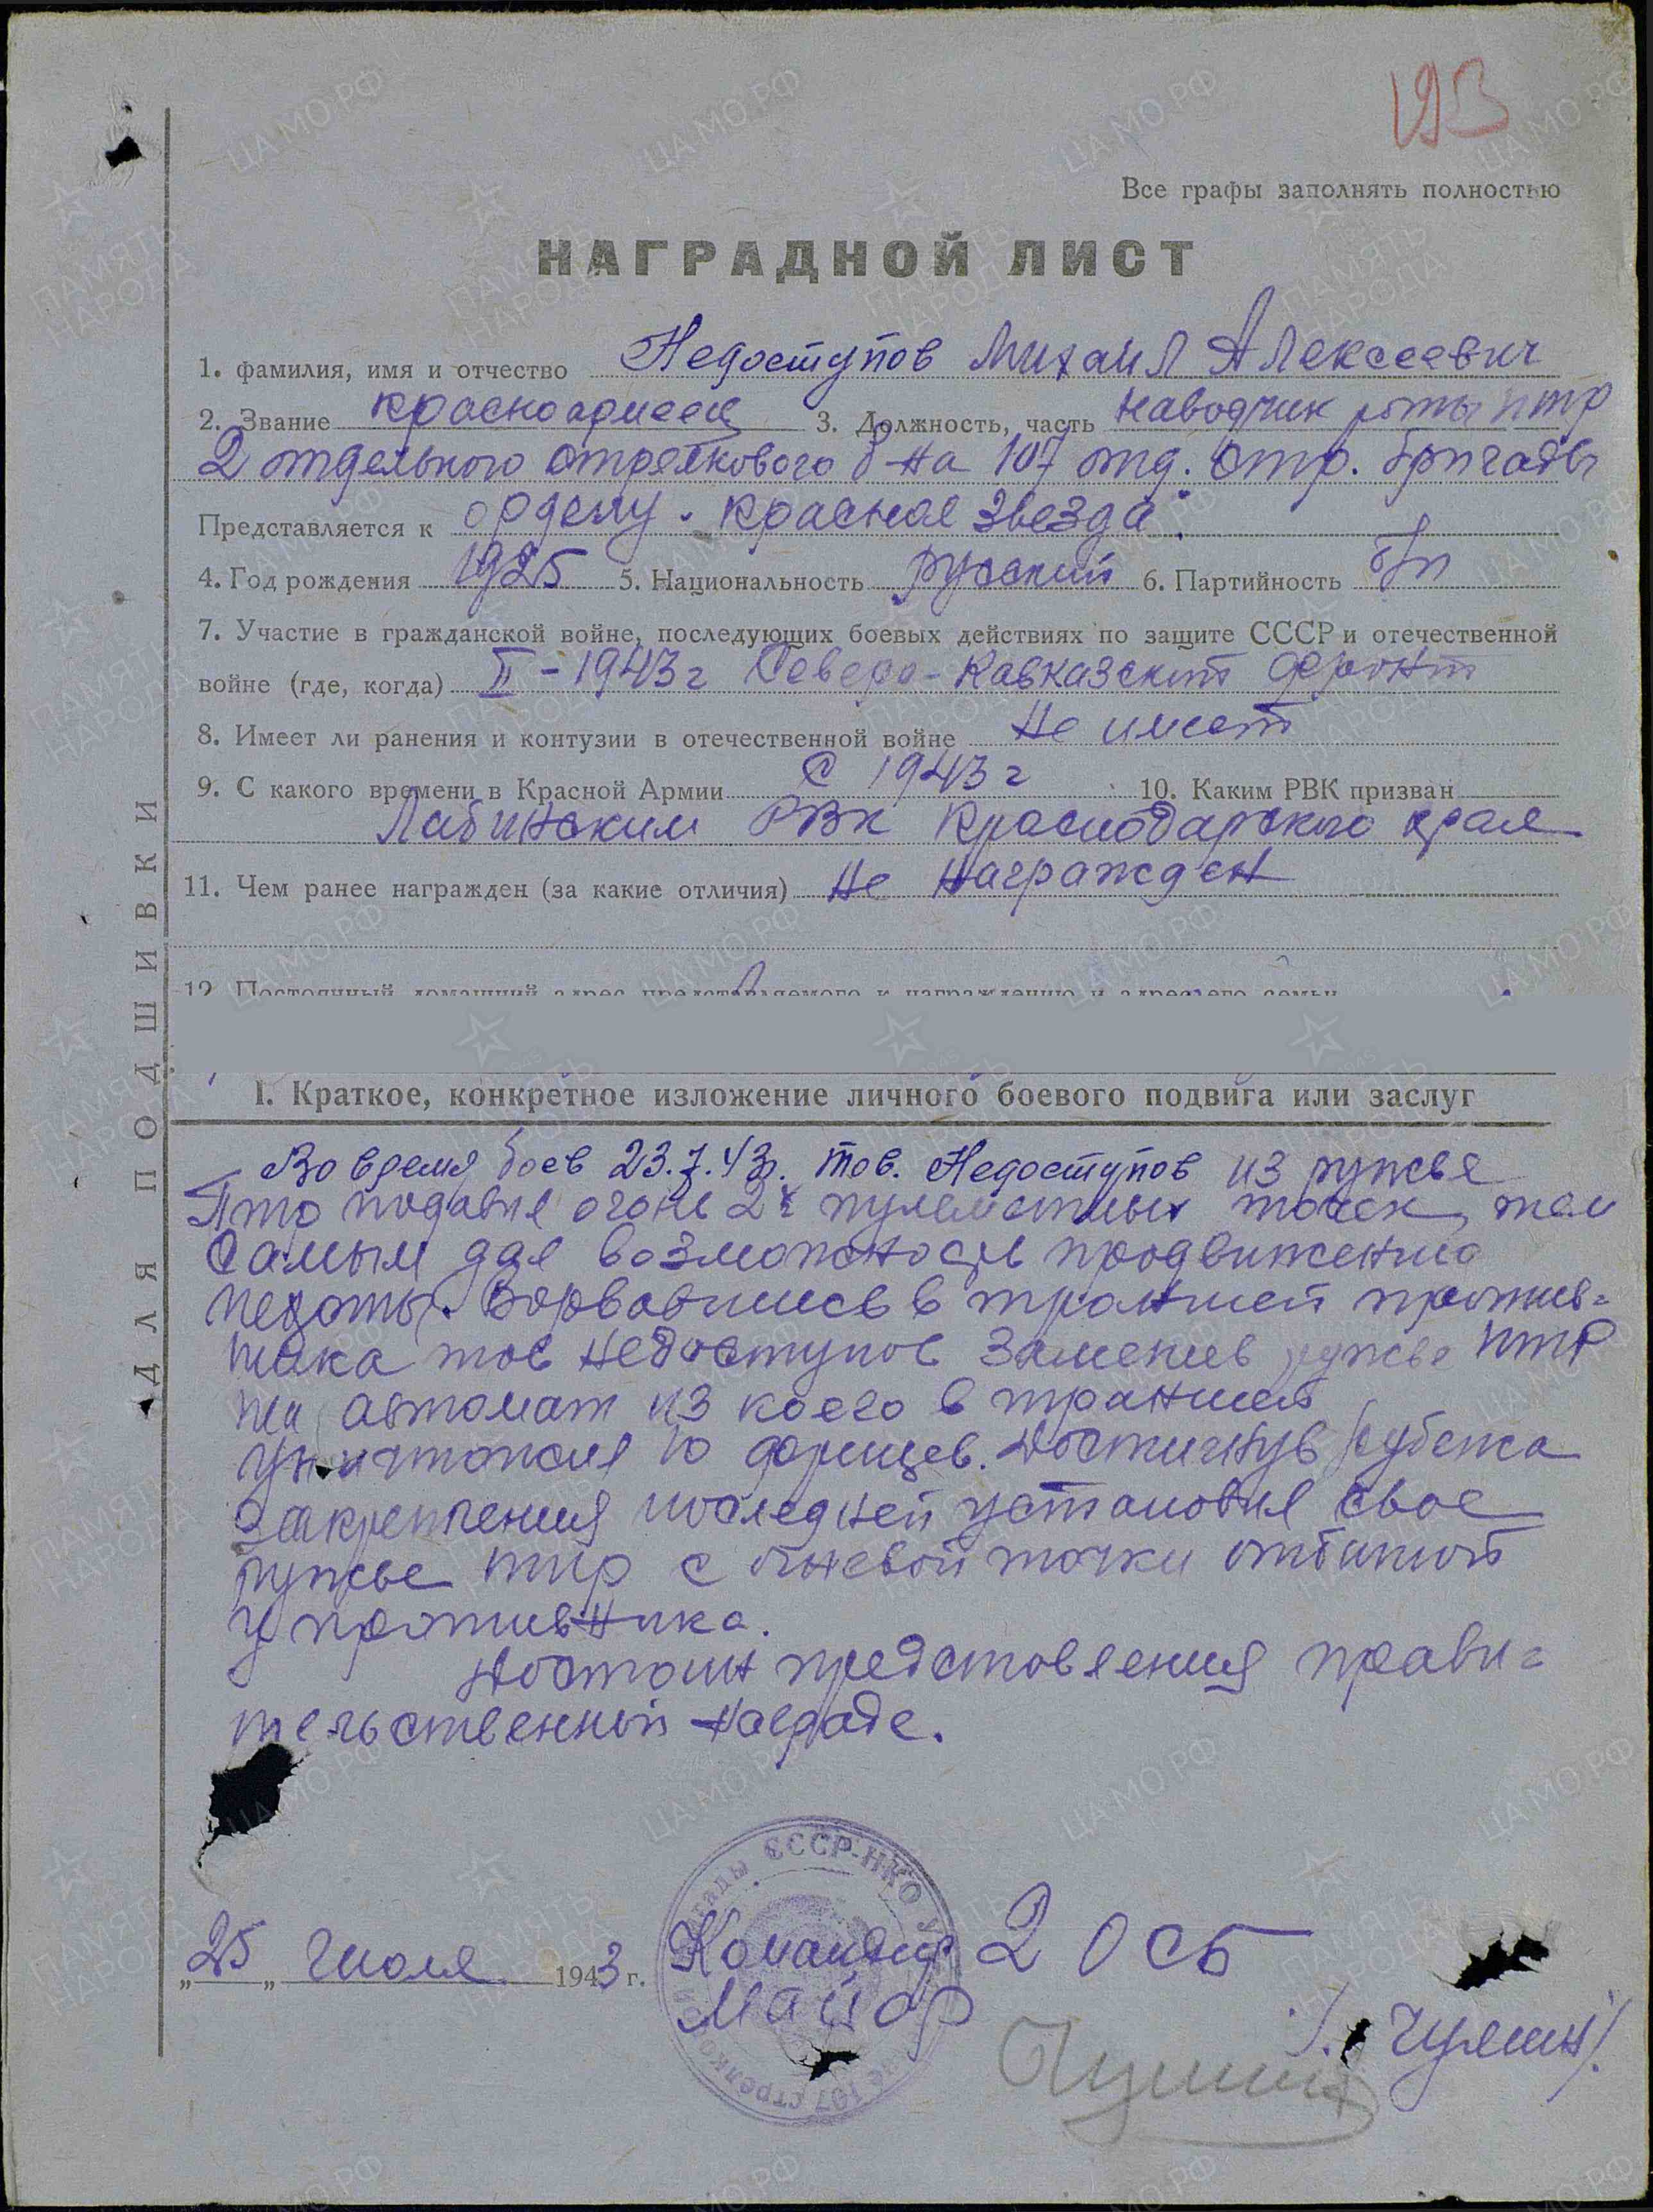 193
Все графы заполнять полностью
НАГРАДНОЙ ЛИСТ
1. фамилия, имя и отчество Недоступов Михаил Алексеевич
2. Звание красноармеец 3. Должность, часть наводчик роты птр
2 отдельного стрелкового б-на 107 отд. стр. бригады
Представляется к ордену "Красная Звезда"
4. Год рождения 1925 5. Национальность русский 6. Партийность б/п
7. Участие в гражданской войне, последующих боевых действиях по защите СССР и отечественной
войне (где, когда) II-1943г Северо-Кавказский фронт
8. Имеет ли ранения и контузии в отечественной войне не имеет
9. С какого времени в Красной Армии с 1943 г 10. Каким РВК призван
Лабинским РВК Краснодарского края
11. Чем ранее награжден (за какие отличия) не награжден
12. Постоянный домашний адрес представляемого к награждению и адрес его семьи
I. Краткое, конкретное изложение личного боевого подвига или заслуг
Во время боев 23.7.43г. тов. Недоступов из ружья
Птр подавил огонь 2х пулеметных точек, тем
самым дал возможность продвижению
пехоты. Ворвавшись в траншеи против-
ника тов Недоступов заменив ружье ПТР
на автомат из коего в траншеях
уничтожил 10 фрицев. Достигнув рубежа
закрепления последней установил свое
ружье птр с огневой точки отбитой
у противника.
Достоин представления прави-
тельственной награде.
"25" Июля 1943 г. Командир 2 ОСБ
Майор
/Чулин/
ДЛЯ ПОДШИВКИ
СССР-НКО
107 стрелко
ПАМЯТЬ НАРОДА
ЦА МО РФ